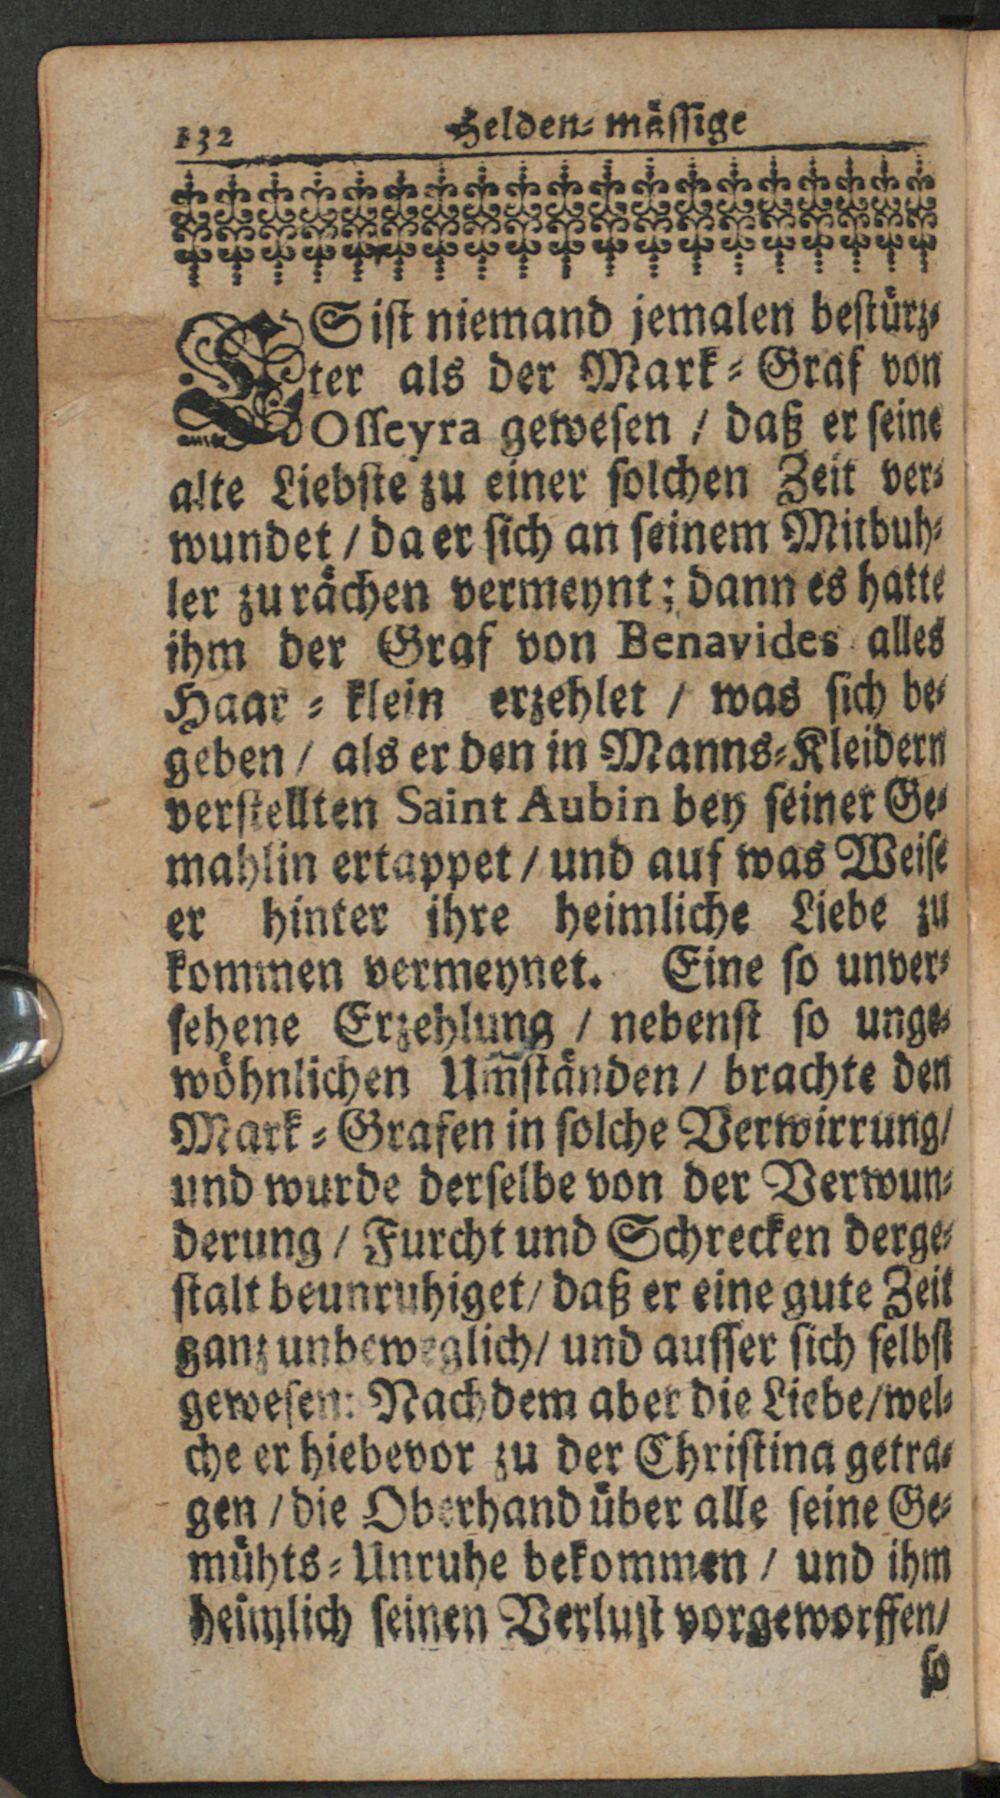 132 Helden-mässige
ES ist niemand jemalen bestürz-
ter als der Mark-Graf von
Osseyra gewesen / daß er seine
alte Liebste zu einer solchen Zeit ver-
wundet / da er sich an seinem Mitbuh-
ler zu rächen vermeynt; dann es hatte
ihm der Graf von Benavides alles
Haar-klein erzehlet / was sich be-
geben / als er den in Manns-Kleidern
verstellten Saint Aubin bey seiner Ge-
mahlin ertappet / und auf was Weise
er hinter ihre heimliche Liebe zu
kommen vermeynet. Eine so unver-
sehene Erzehlung / nebenst so unge-
wöhnlichen Um̃ständen / brachte den
Mark-Grafen in solche Verwirrung/
und wurde derselbe von der Verwun-
derung / Furcht und Schrecken derge-
stalt beunruhiget/ daß er eine gute Zeit
ganz unbeweglich/ und ausser sich selbst
gewesen: Nachdem aber die Liebe/wel-
che er hiebevor zu der Christina getra-
gen / die Oberhand über alle seine Ge-
mühts-Unruhe bekommen / und ihm
heimlich seinen Verlust vorgeworffen/
so